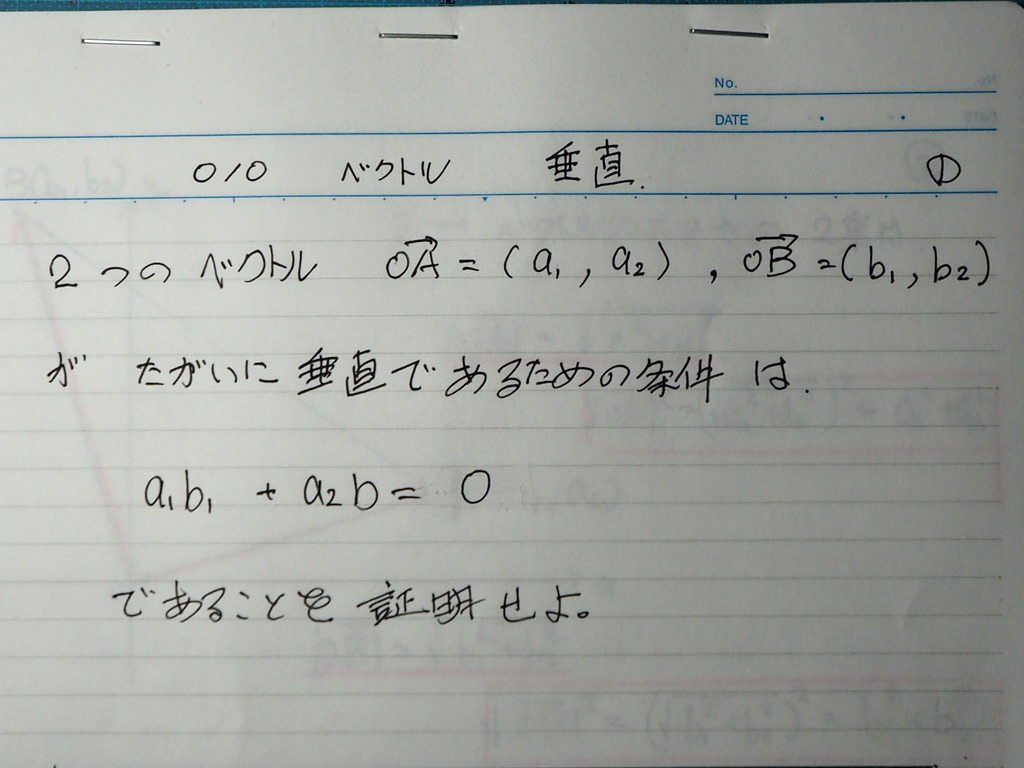 No.
DATE
010 ベクトル 垂直. ①
2つのベクトル OA→ = (a₁, a₂), OB→ = (b₁, b₂)
が たがいに垂直であるための条件は.
a₁b₁ + a₂b = 0
であることを証明せよ。